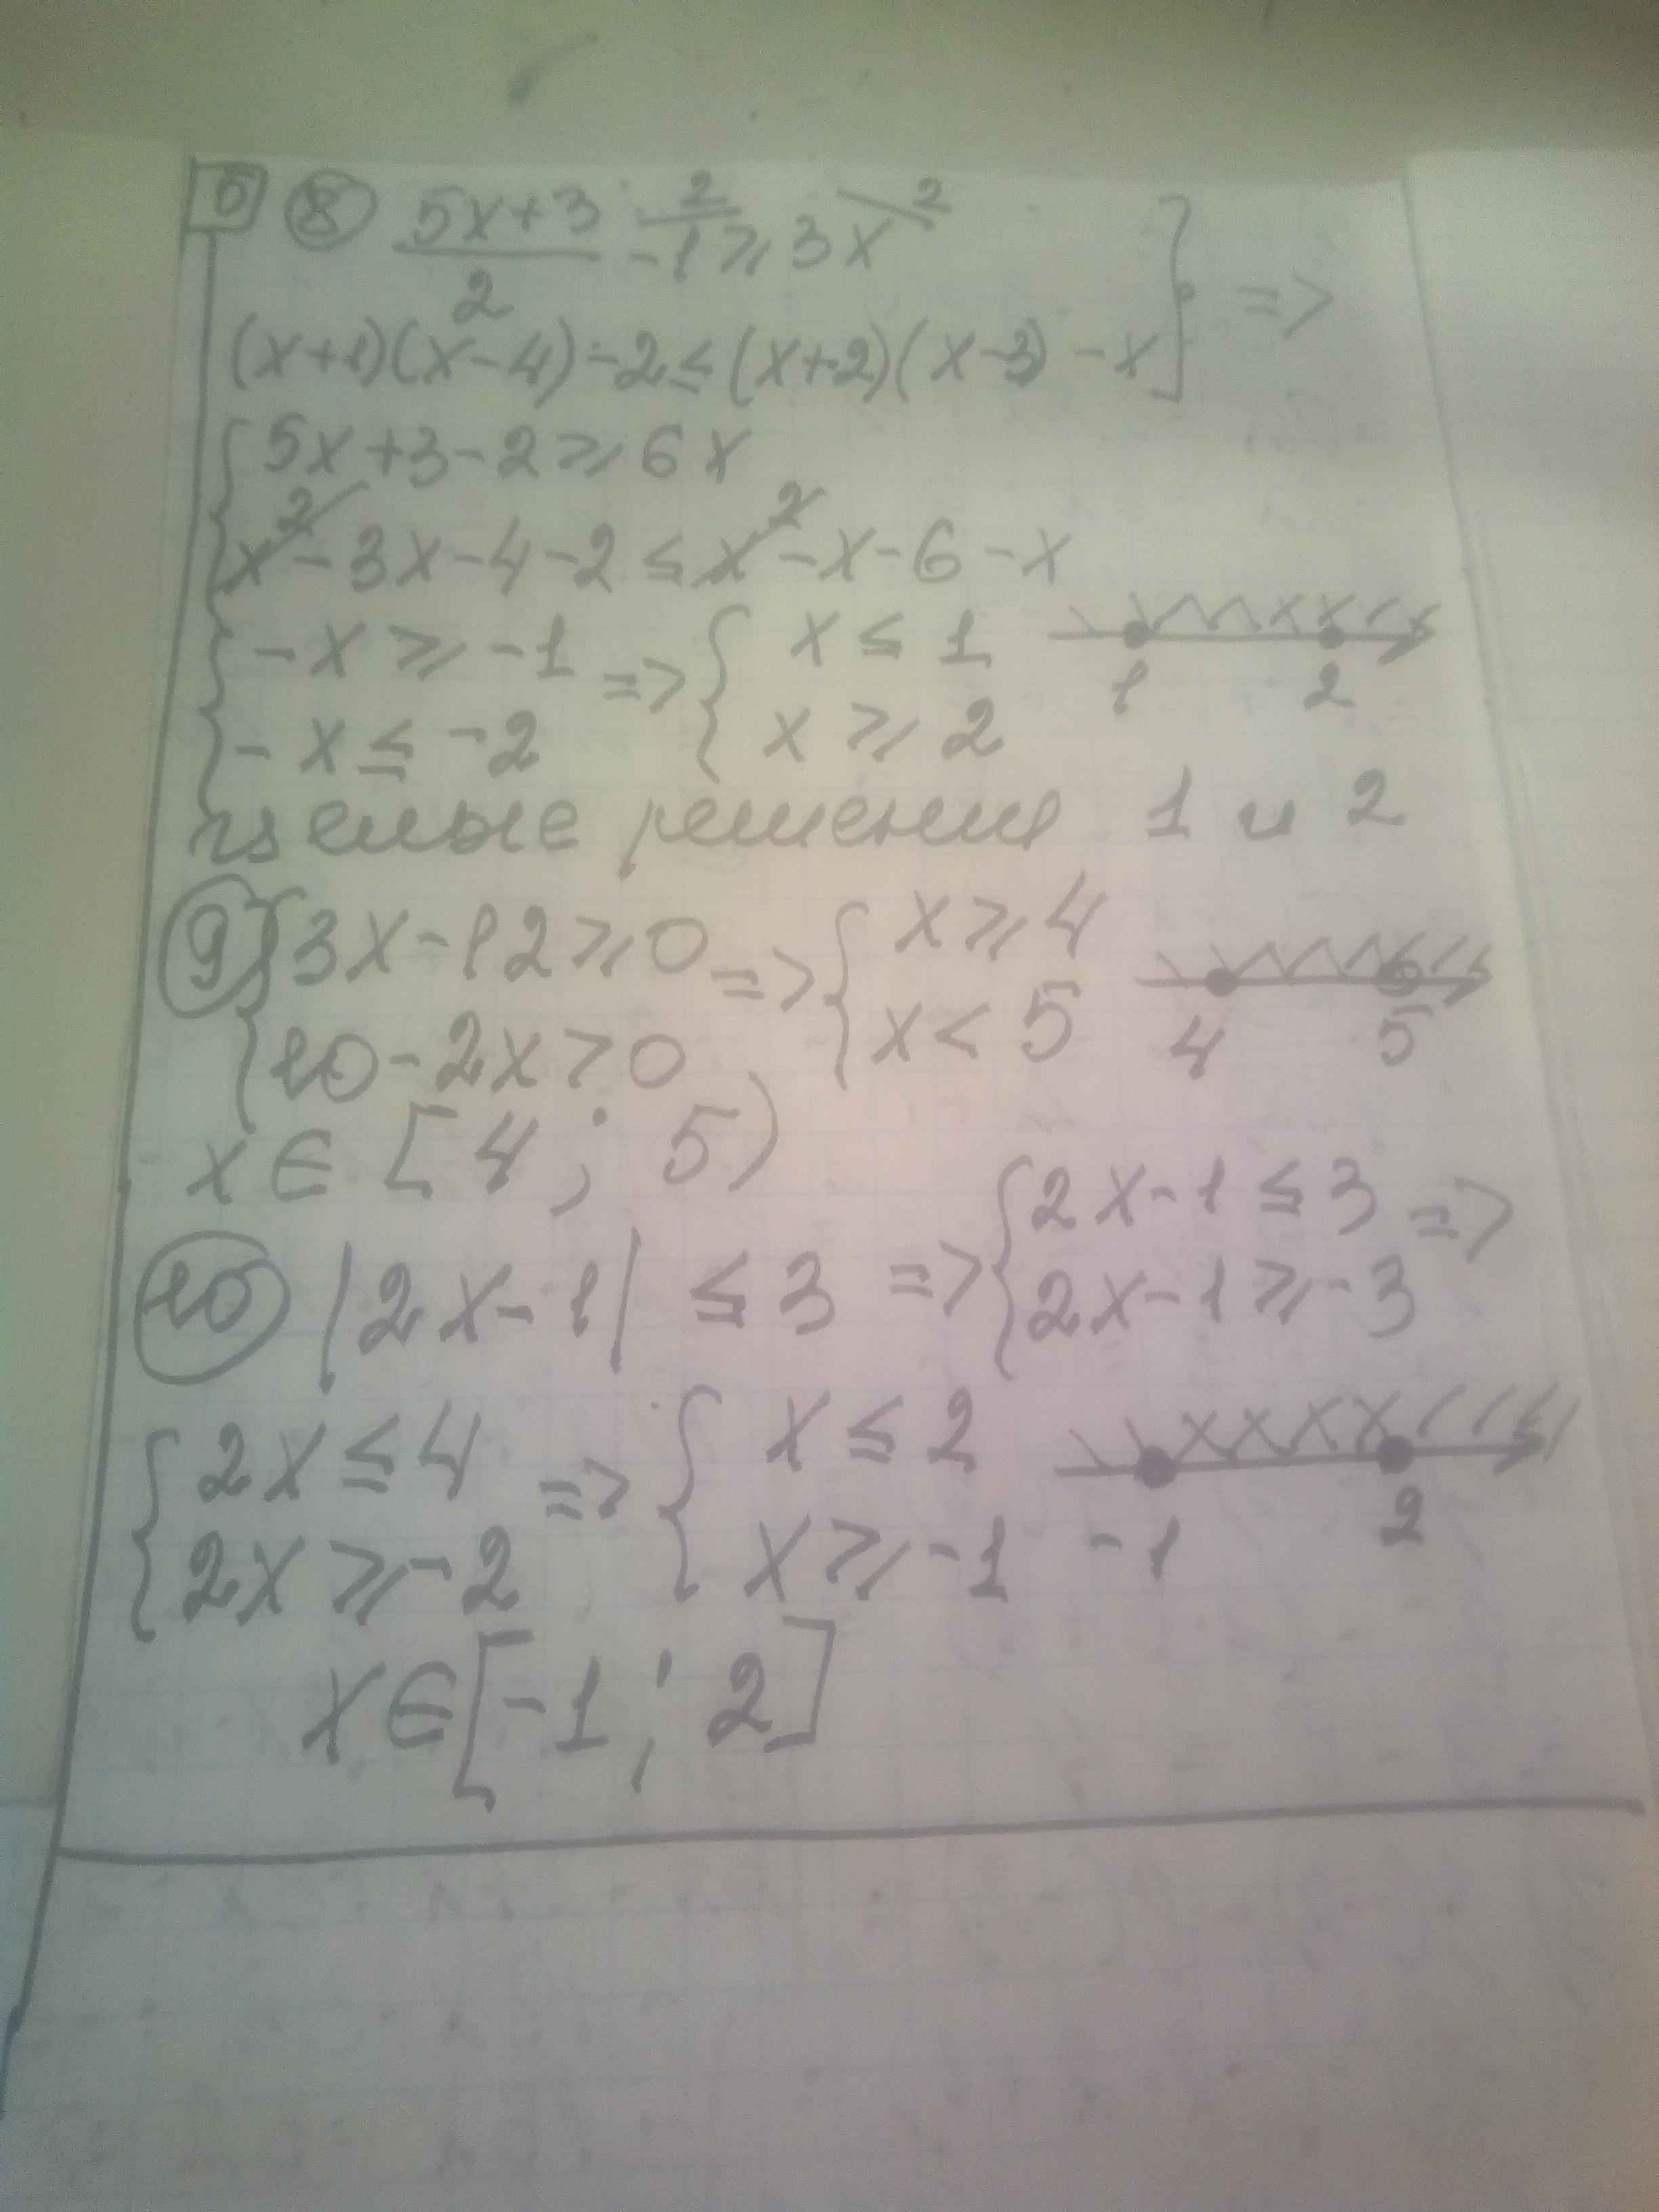 б ⑧ (5x+3)/2 - 1 ≥ 3x
2 2
(x+1)(x-4) - 2 ≤ (x+2)(x-3) - x =>
5x+3-2 ≥ 6x
x² - 3x - 4 - 2 ≤ x² - x - 6 - x
-x ≥ -1 => x ≤ 1
-x ≤ -2 x ≥ 2
1 2
целые решения 1 и 2
⑨ 3x - 12 ≥ 0 => x ≥ 4
10 - 2x > 0 x < 5
4 5
x ∈ [4; 5)
⑩ |2x-1| ≤ 3 => 2x-1 ≤ 3 =>
2x-1 ≥ -3
2x ≤ 4 => x ≤ 2
2x ≥ -2 x ≥ -1
-1 2
x ∈ [-1; 2]